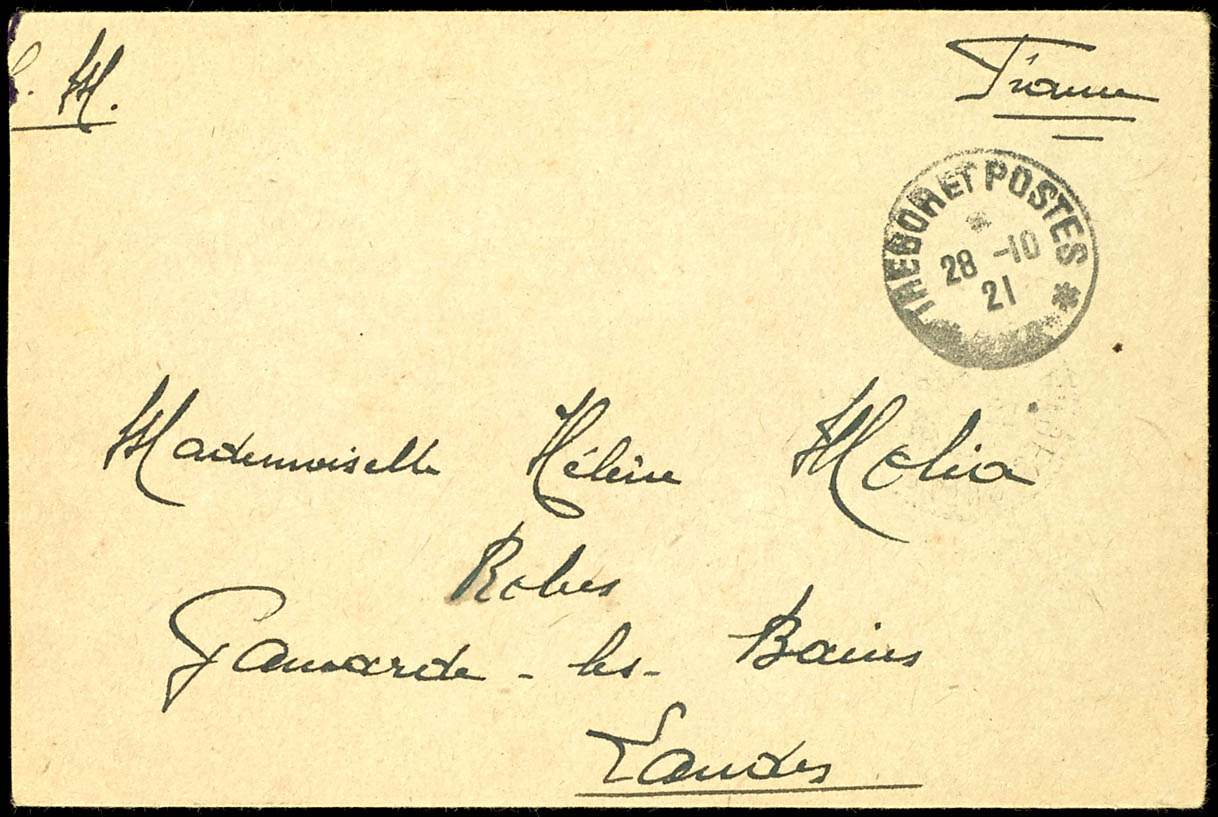 . M.
France
TRESOR ET POSTES
*
28 -10
21
*
Mademoiselle Hélène Molia
Robes
Gamarde-les-Bains
Landes